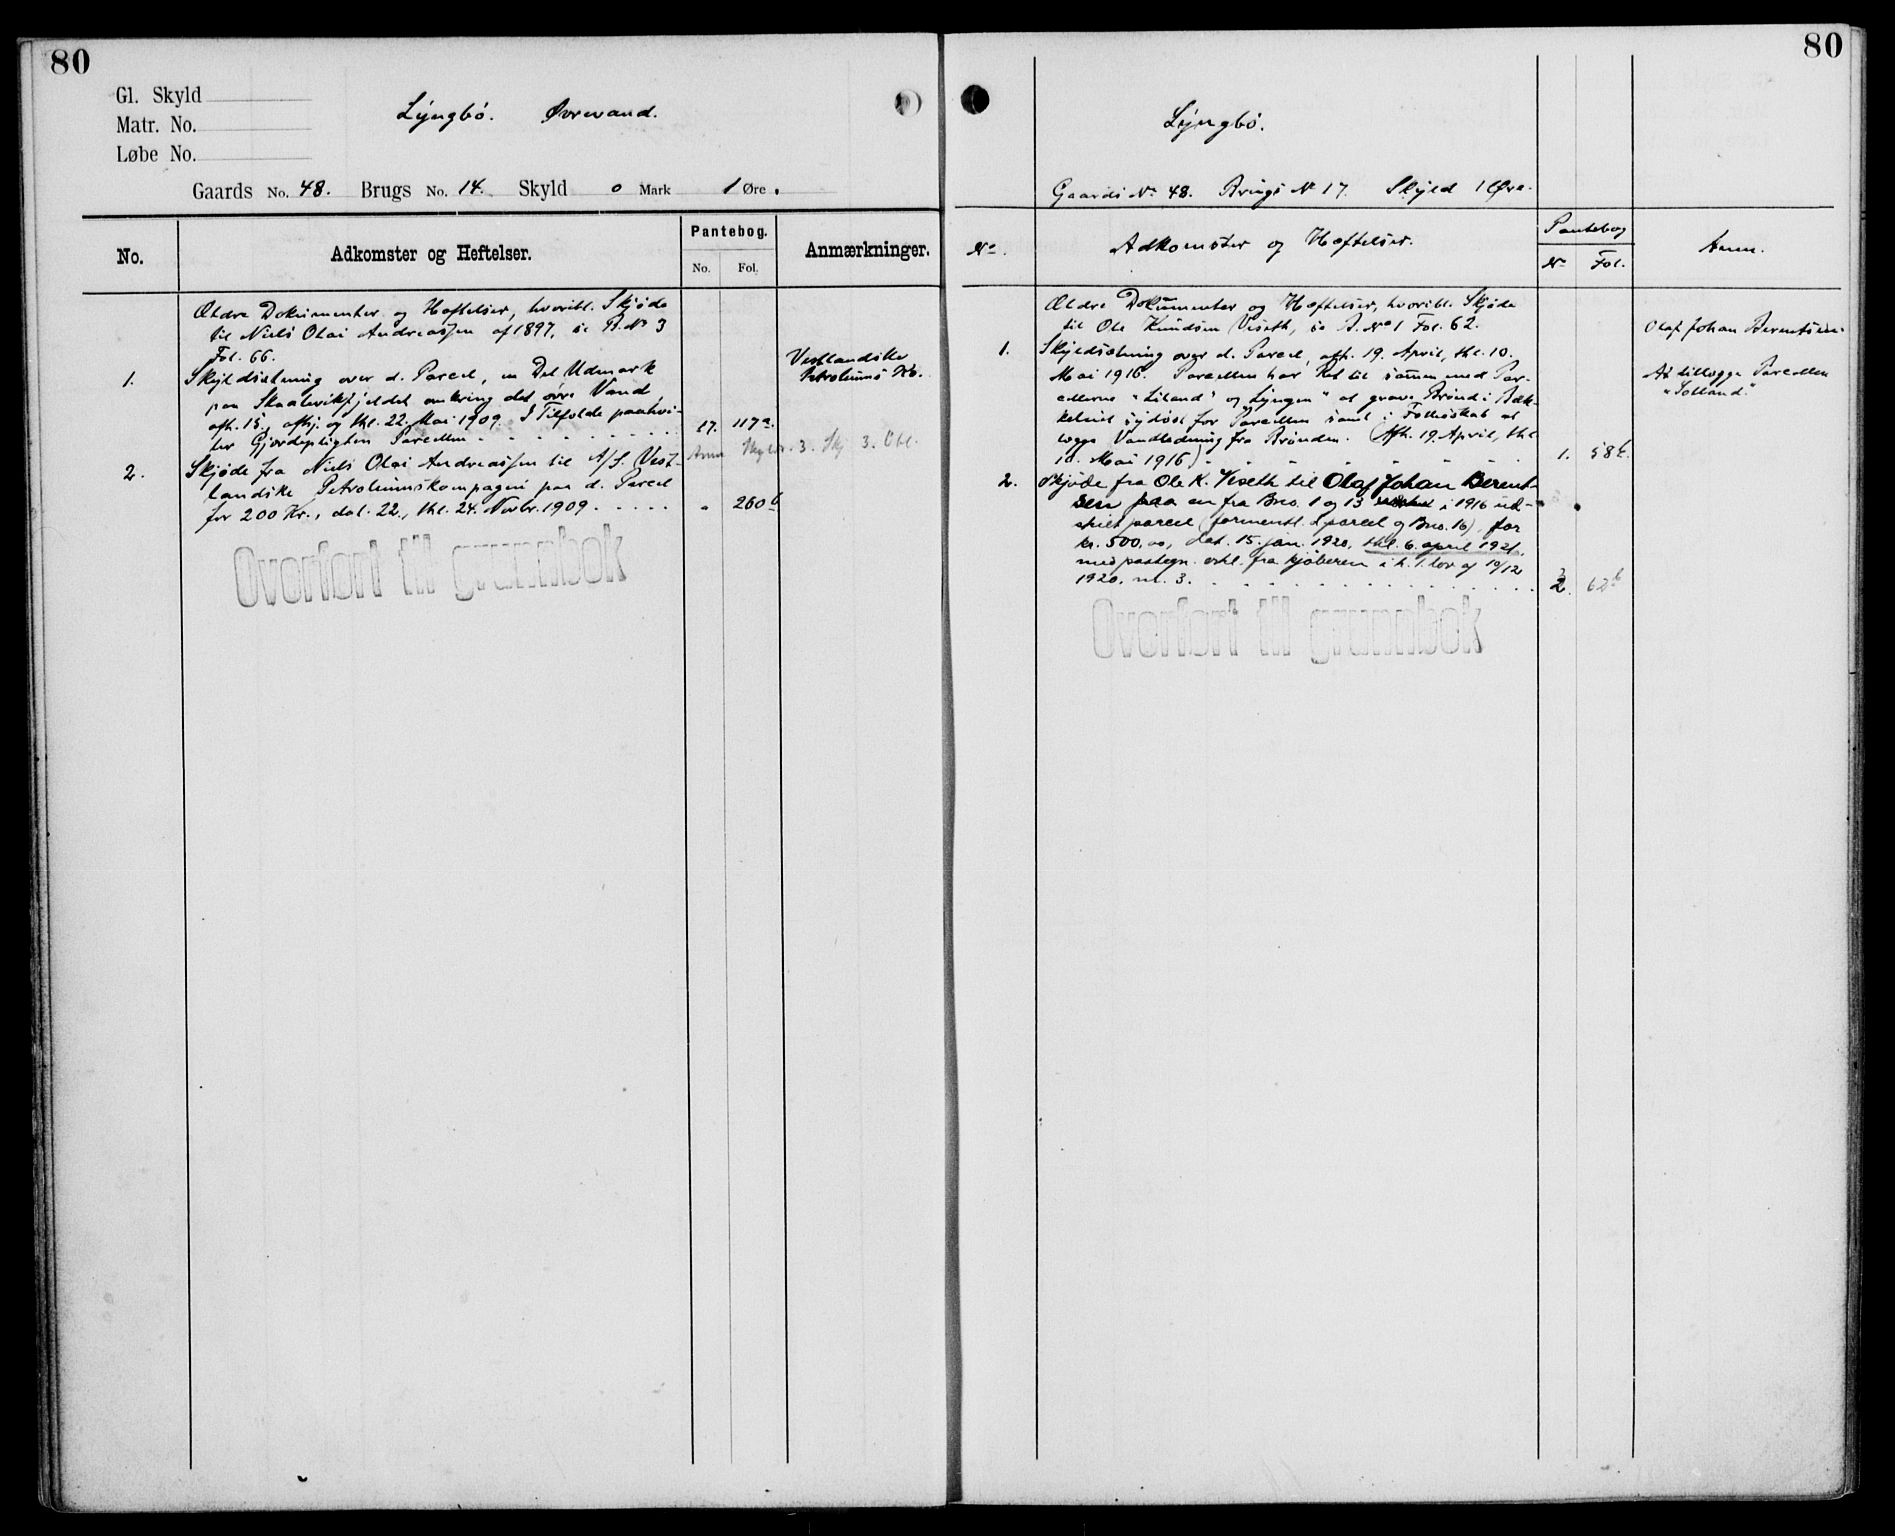 80
Gl. Skyld
Matr. No.
Løbe No.
Lyngbö. Øvrevand.
Gaards No. 48. Brugs No. 14. Skyld 0 Mark 1 Øre.
No. Adkomster og Heftelser. Pantebog. No. Fol. Anmærkninger.
Ældre Dokumenter og Hæftelser, hvoribl. Skjøde
til Niels Olai Andreassen af 1897, se B. No 3
Fol. 66.
1. Skyldsætning over d. Parcel, en Del Udmark
paa Skaalevikfjeldet omkring det øvre Vand,
afh. 15., afhj. og thl. 22. Mai 1909. I Tilfælde paahvi-
ler Gjerdepligten Parcellen 17. 117a.
Vestlandske
Petroleums Ko.
Anm 3. Skj 3. Obl.
2. Skjøde fra Niels Olai Andreassen til A/S. Vest-
landske Petroleumskompagni paa d. Parcel
for 200 Kr., dat. 22., thl. 24. Novbr. 1909 " 260b
Overført til grunnbok
80
Lyngbö.
Gaards No 48. Brugs No 17. Skyld 1 Øre.
No. Adkomster og Hæftelser. Pantebog No Fol. Anm.
Ældre Dokumenter og Hæftelser, hvoribl. Skjøde
til Ole Knudsen Viseth, se B. No 1 Fol. 62.
Olaf Johan Berentsen.
1. Skyldsætning over d. Parcel, afh. 19. April, thl. 10.
Mai 1916. Parcellen har Ret til sammen med Par-
cellerne "Liland" og Lyngen" at grave Brønd i Bæk-
kelivet sydøst for Parcellen samt i Fællesskab at
lægge Vandledning fra Brønden. (Afh. 19. April, thl.
10. Mai 1916) 1. 58
At tillægge Parcellen
"Solland".
2. Skjøde fra Ole K. Viseth til Olaf Johan Berent-
sen paa en fra Bno. 1 og 13 i 1916 ud-
skilt parcel (formentl. d. parcel og Bno. 16), for
kr. 500,00, dat. 15. jan. 1920, thl. 6. april 1921,
med paategn. erkl. fra kjøberen i h. t. lov af 10/12
1920. nr. 3. 2. 62b
Overført til grunnbok